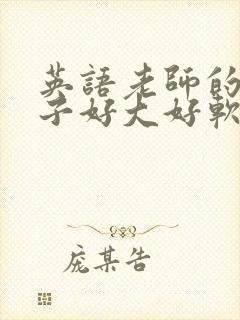 英語老師的
子好大好軟
庞某告